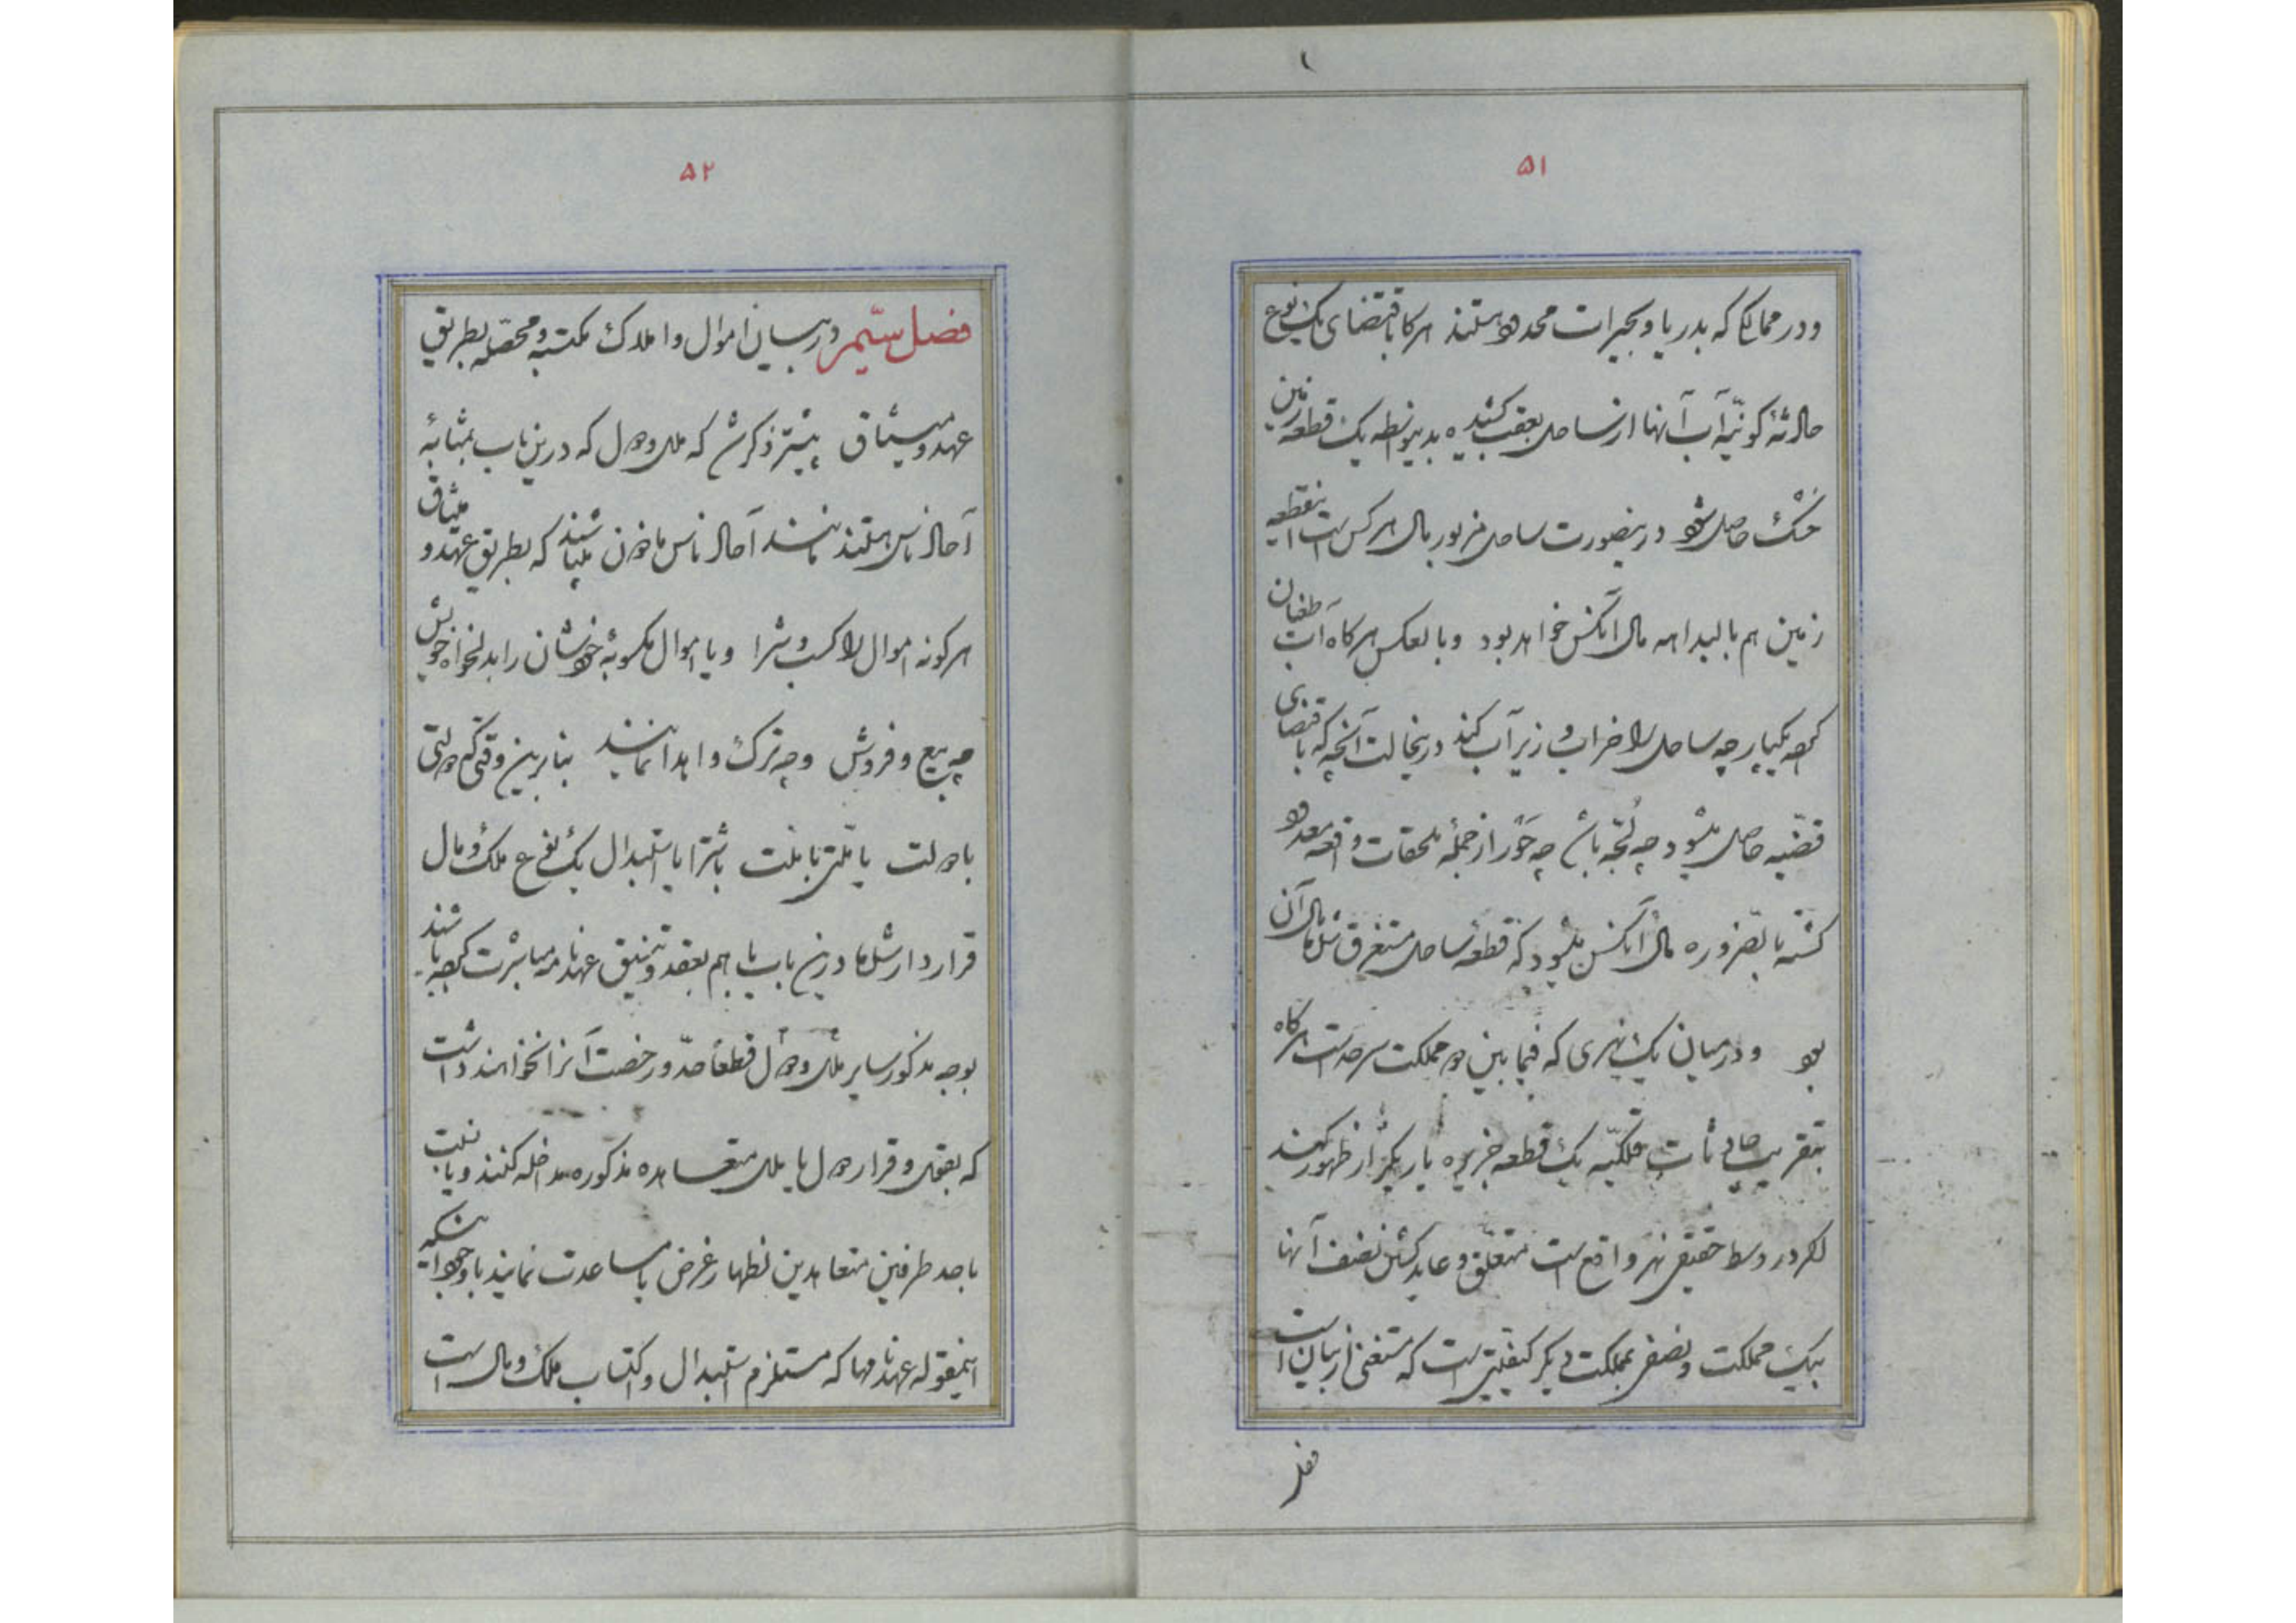 ۵۱
ودر ممالکی که بدریا و بحیرات محدود هستند هرگاه باقتضای یک نوع
حادثهٔ کونیّه آب آنها از ساحل بعقب کشیده بدینواسطه یک قطعه زمین
خشک حاصل شود درینصورت ساحل مزبور مال هر کس است اینقطعه
زمین هم بالبداهه مال آنکس خواهد بود وبالعکس هرگاه آب طغیان
کرده یکپارچه ساحل را خراب و زیر آب کند درینحالت آنچه که باقتضای
قضیّه حاصل میشود چه لجّه باشد چه خور از جملهٔ ملحقات واقعه معدود
کشته بالضروره مال آنکس میشود که قطعهٔ ساحل مستغرق شده مال آن
بود ودر میان یک نهری که فیمابین دو مملکت سرحد است هرگاه
بتقریب حادثات فلکیّه یک قطعه جزیره یا ریگزار ظهور کند
اگر در وسط حقیقی نهر واقع است متعلّق و عاید کشتن نصف آنها
بیک مملکت ونصفی بمملکت دیگر کیفیّتی است که مستغنی از بیان است
فصل
۵۲
فصل سیّم در بیان اموال واملاک مکتسبه و محصّله بطریق
عهد و میثاق پیشتر ذکر شد که ملل و دول که درین باب بمثابهٔ
آحاد ناس هستند مانند آحاد ناس مأذون میباشند که بطریق عهد و میثاق
هرگونه اموال را کسب و شرا ویا اموال مکسوبهٔ خودشان را بدلخواه خویش
چه بیع و فروش وچه ترک واهدا نمایند بنابرین وقتی که دولتی
با دولت یا ملّتی با ملّت باشترا یا استبدال یک نوع ملک و مال
قرارداد شده مادرین باب با هم بعقد و تنمیق عهدنامه مباشرت کرده باشند
بوجه مذکور سایر ملل و دول قطعاً حدّ و رخصت آنرا نخواهند داشت
که بعقد و قرار دول یا ملل متعاهده مذکوره مداخله کنند ویا نسبت
باحد طرفین متعاهدین اظهار غرض یا مساعدت نمایند با وجود اینکه
اینمقوله عهدنامها که مستلزم استبدال و اکتساب ملک و مال است